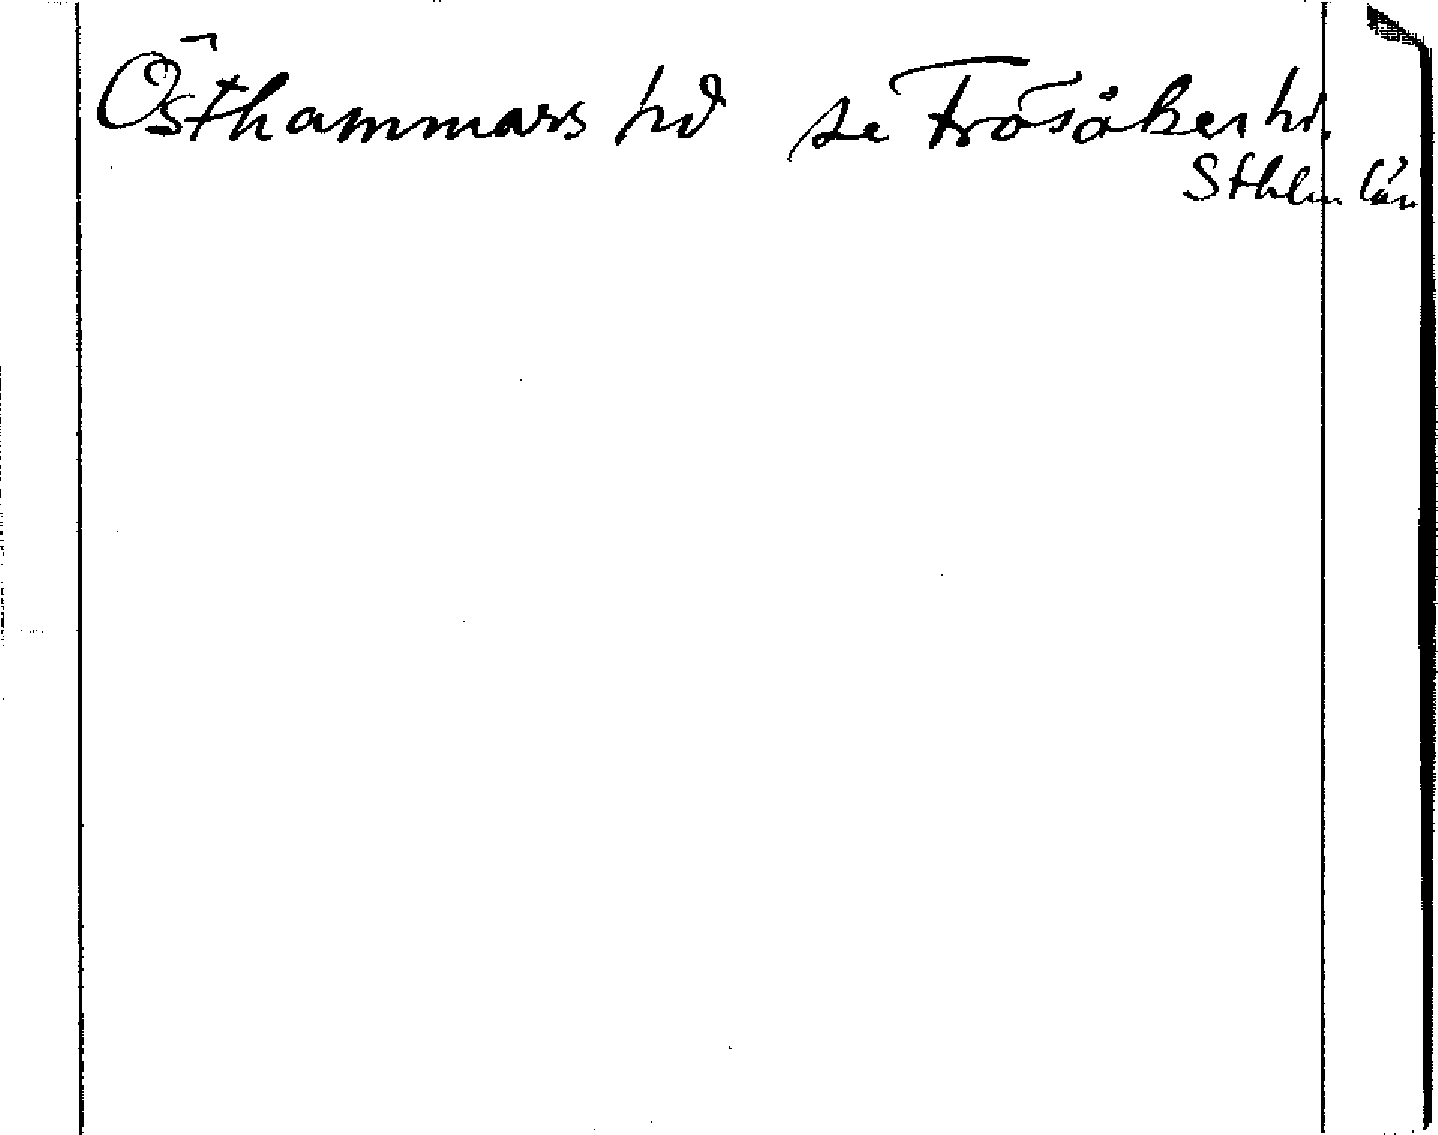 Östhammars hd se Frösåkers hd.
Sthlm län